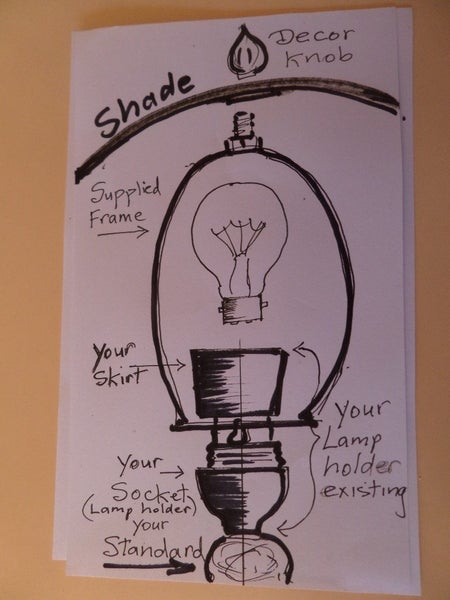 Decor
Knob
Shade
Supplied
Frame
Your
Skirt
Your
Lamp
holder
existing
Your
Socket
(Lamp holder)
your
Standard